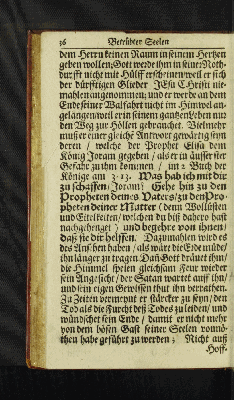 36 Betrübter Seelen
dem Herrn keinen Raum in seinem Hertzen
geben wollen; Gott werde ihm in seiner Noth-
durfft nicht mit Hülff erscheinen weil er sich
der dürfftigen Glieder JEsu Christi nie-
mahlen angenommen; und er werde an dem
Ende seiner Walfahrt nicht im Himmel an-
gelangen weil er in seinem gantzen Leben nur
den Weg zur Höllen gebrauchet. Vielmehr
muß er einer gleiche Antwort gewärtig seyn
deren / welche der Prophet Elisa dem
König Joram gegeben / als er in äusserster
Gefahr zu ihm kommen / im 2 Buch der
Könige am 3. 13. Was hab ich mit dir
zu schaffen / Joram? Gehe hin zu den
Propheten deines Vaters / zu den Pro-
pheten deiner Mutter (denn Wollüsten
und Eitelkeiten / welchen du biß dahero hast
nachgehenget) und begehre von ihnen /
daß sie dir helffen. Dazumahlen wird es
des Ansehen haben / als wäre die Erde müde /
ihn länger zu tragen Daß Gott dräuet ihm /
die Himmel speien gleichsam Feur wieder
sein Angesicht / der Satan wartet auff ihn /
und sein eigen Gewissen thut ihn verrathen.
Zu Zeiten vermeynt er stärcker zu seyn / den
Tod als die Furcht deß Todes zu leiden / und
wündschet sein Ende / damit er nicht mehr
von dem bösen Gast seiner Seelen vonnö-
then habe geführt zu werden; Nicht auß
Hoff-